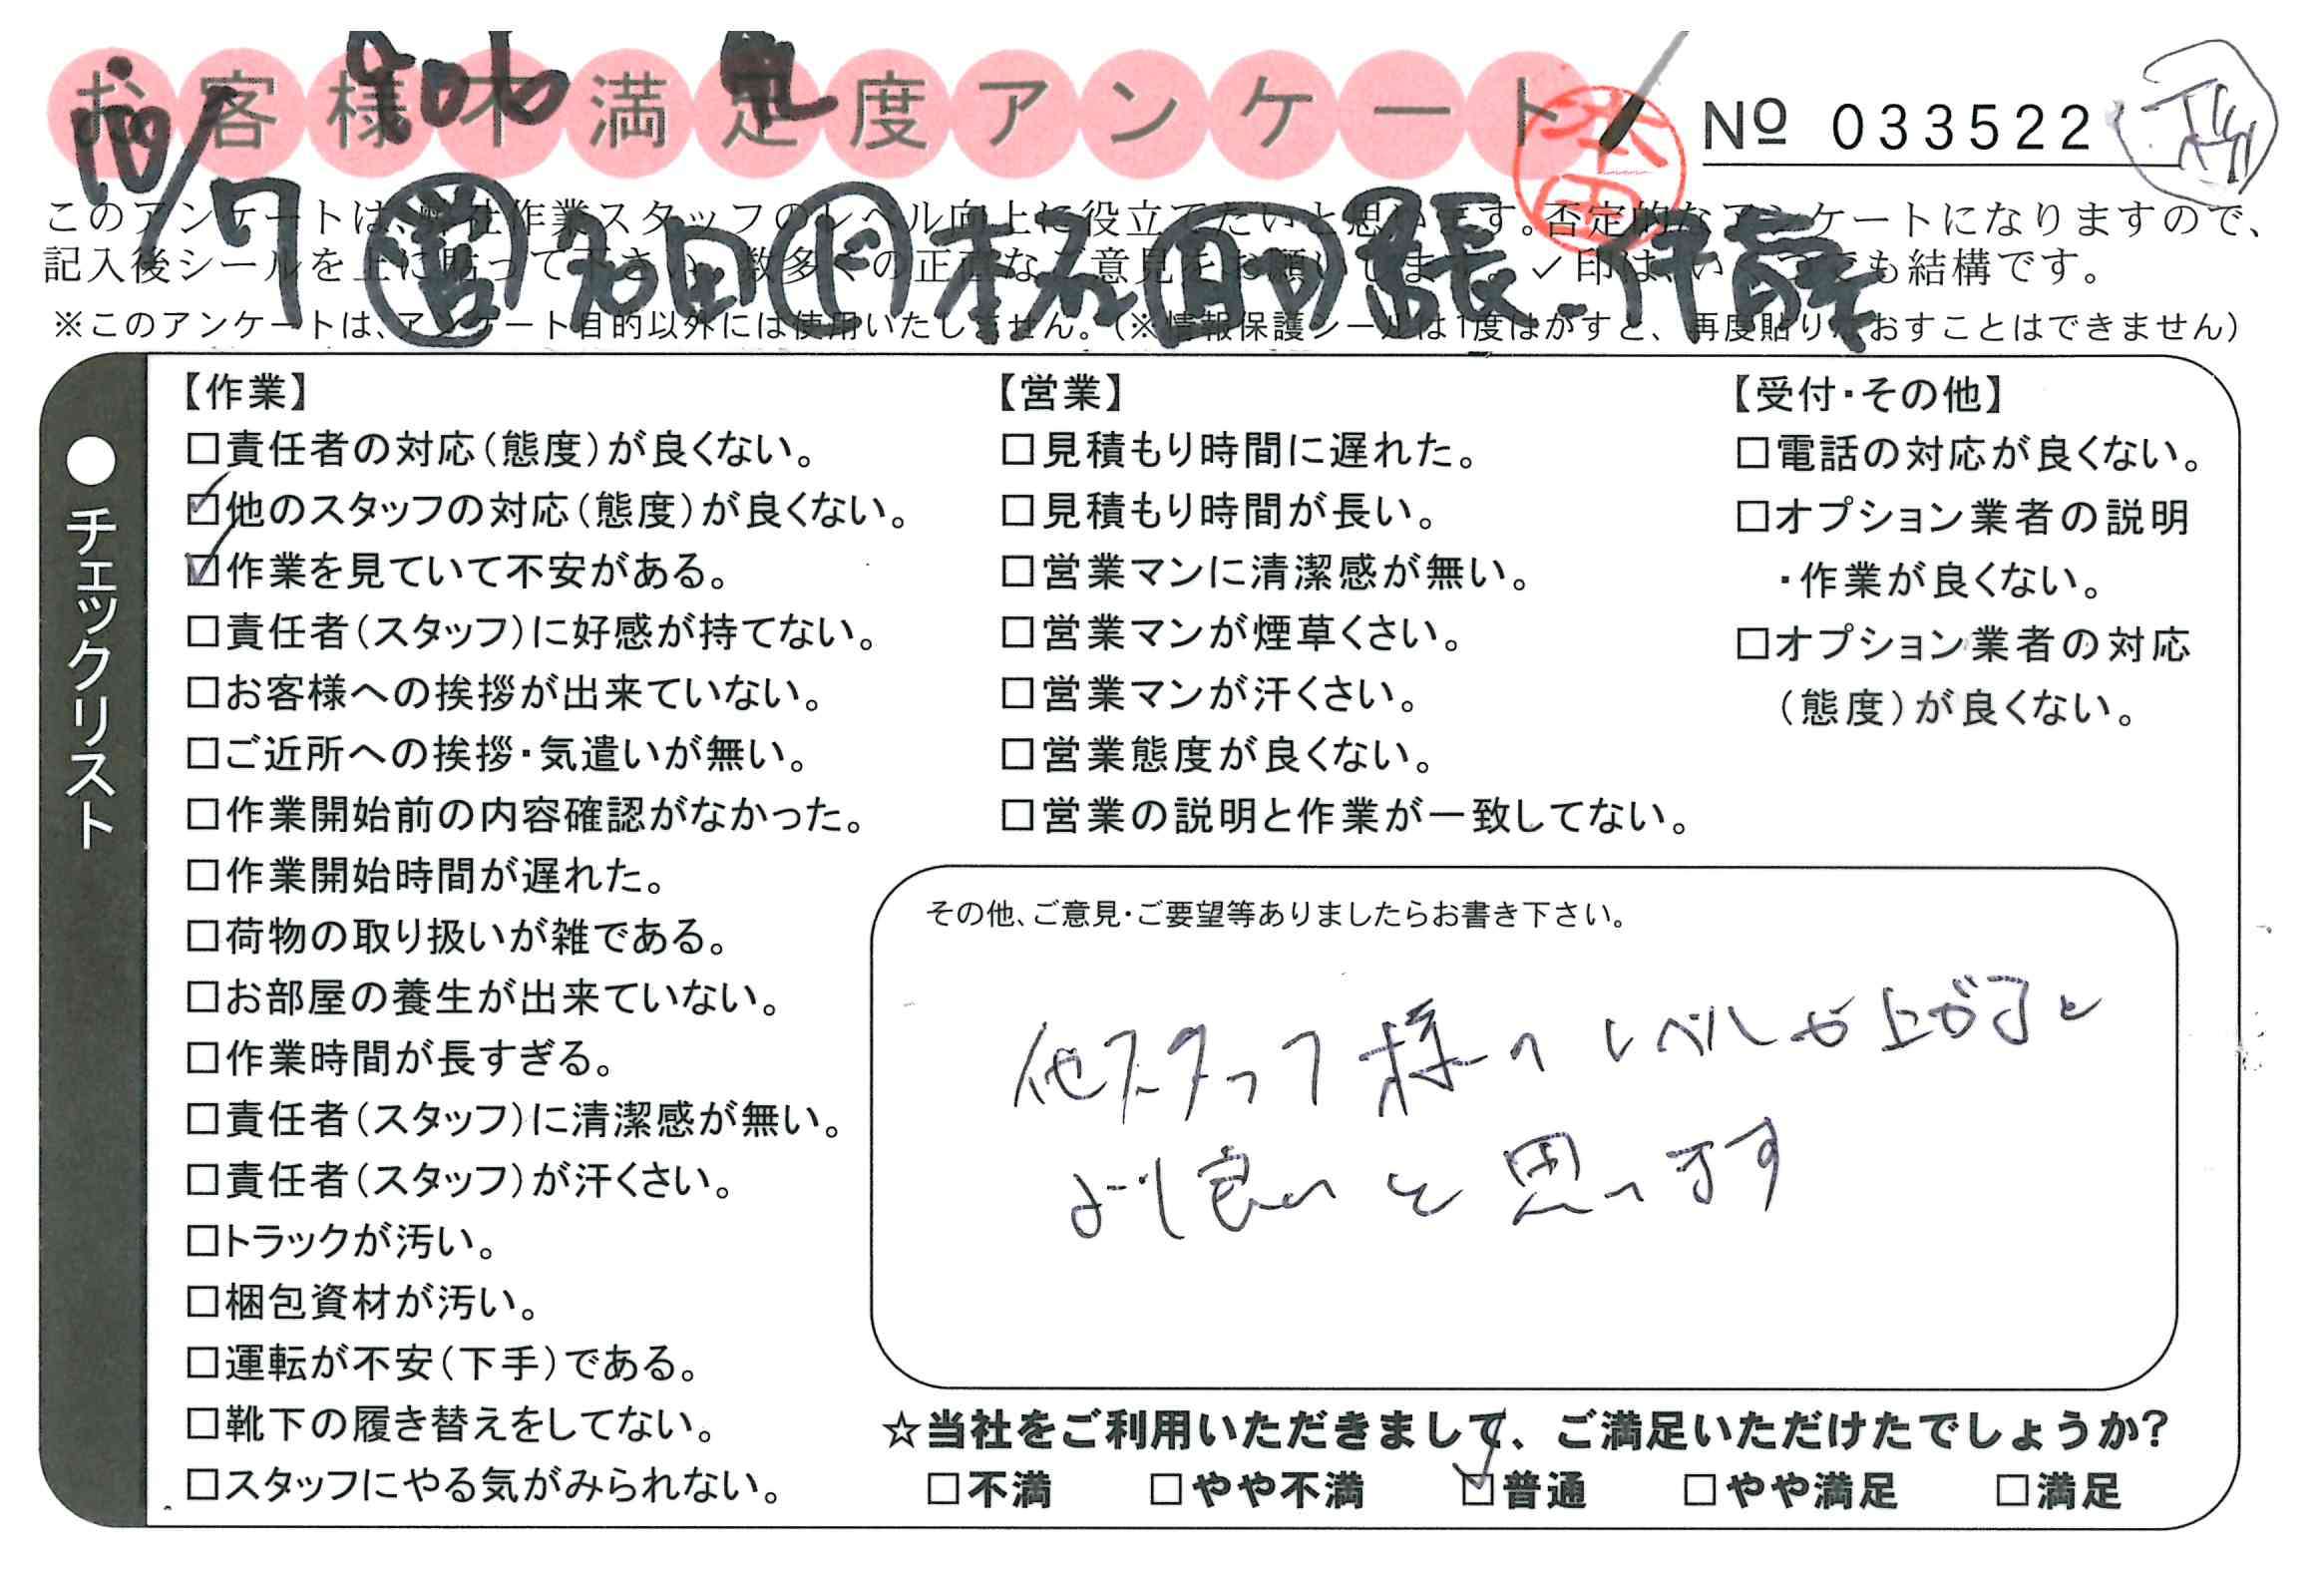 お客様不満足度アンケート
№ 033522
10/7 営 知田 ド 本 助 張、伊藤
本田
このアンケートは、弊社作業スタッフのレベル向上に役立てたいと思います。否定的なアンケートになりますので、
記入後シールを上に貼って下さい。数多くの正直なご意見をお願いします。✓印はいくつでも結構です。
※このアンケートは、アンケート目的以外には使用いたしません。（※情報保護シールは1度はがすと、再度貼りなおすことはできません）
●チェックリスト
【作業】
□責任者の対応（態度）が良くない。
☑他のスタッフの対応（態度）が良くない。
☑作業を見ていて不安がある。
□責任者（スタッフ）に好感が持てない。
□お客様への挨拶が出来ていない。
□ご近所への挨拶・気遣いが無い。
□作業開始前の内容確認がなかった。
□作業開始時間が遅れた。
□荷物の取り扱いが雑である。
□お部屋の養生が出来ていない。
□作業時間が長すぎる。
□責任者（スタッフ）に清潔感が無い。
□責任者（スタッフ）が汗くさい。
□トラックが汚い。
□梱包資材が汚い。
□運転が不安（下手）である。
□靴下の履き替えをしてない。
□スタッフにやる気がみられない。
【営業】
□見積もり時間に遅れた。
□見積もり時間が長い。
□営業マンに清潔感が無い。
□営業マンが煙草くさい。
□営業マンが汗くさい。
□営業態度が良くない。
□営業の説明と作業が一致してない。
【受付・その他】
□電話の対応が良くない。
□オプション業者の説明
・作業が良くない。
□オプション業者の対応
（態度）が良くない。
その他、ご意見・ご要望等ありましたらお書き下さい。
他スタッフ様のレベルが上がると
より良いと思います
☆当社をご利用いただきまして、ご満足いただけたでしょうか？
□不満 □やや不満 ☑普通 □やや満足 □満足